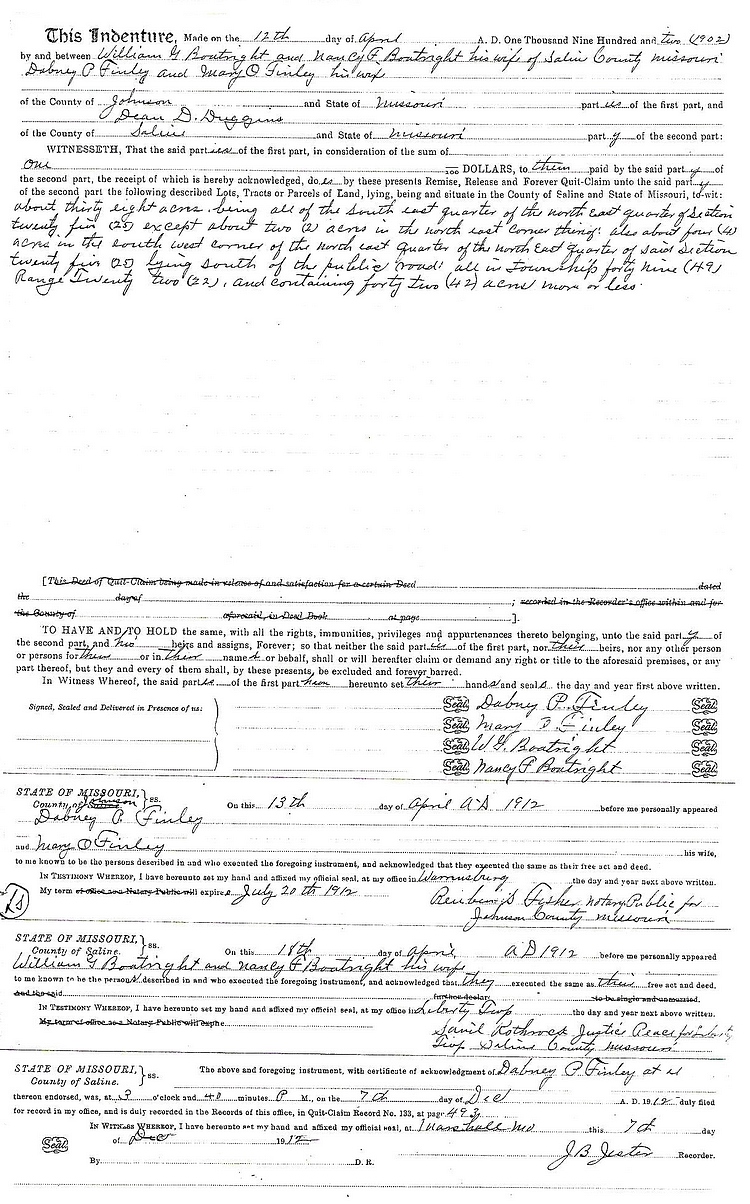 This Indenture, Made on the 12th day of April A. D. One Thousand Nine Hundred and two (1902)
by and between William G Boatright and Nancy F Boatright his wife of Saline County Missouri
Dabney P Finley and Mary O Finley his wife
of the County of Johnson and State of Missouri parties of the first part, and
Dean D. Duggins
of the County of Saline and State of Missouri party of the second part:
WITNESSETH, That the said parties of the first part, in consideration of the sum of
One /100 DOLLARS, to them paid by the said party of
the second part, the receipt of which is hereby acknowledged, does by these presents Remise, Release and Forever Quit-Claim unto the said party
of the second part the following described Lots, Tracts or Parcels of Land, lying, being and situate in the County of Saline and State of Missouri, to-wit:
about thirty eight acres. being all of the South east quarter of the north East quarter of Section
twenty five (25) except about two (2) acres in the north east corner thing: also about four (4)
acres in the south west corner of the north east quarter of the north East quarter of said Section
twenty five (25) lying south of the public road: all in Township forty nine (49)
Range Twenty two (22), and containing forty two (42) acres more or less
[This Deed of Quit-Claim being made in release of and satisfaction for a certain Deed dated
the day of ; recorded in the Recorder's office within and for
the County of aforesaid, in Deed Book at page ].
TO HAVE AND TO HOLD the same, with all the rights, immunities, privileges and appurtenances thereto belonging, unto the said party of
the second part, and his heirs and assigns, Forever; so that neither the said parties of the first part, nor their heirs, nor any other person
or persons for them or in their names or behalf, shall or will hereafter claim or demand any right or title to the aforesaid premises, or any
part thereof, but they and every of them shall, by these presents, be excluded and forever barred.
In Witness Whereof, the said parties of the first part have hereunto set their hands and seals the day and year first above written.
Signed, Sealed and Delivered in Presence of us:
Seal Dabney P. Finley Seal
Seal Mary O Finley Seal
Seal W. G. Boatright Seal
Seal Nancy F Boatright Seal
STATE OF MISSOURI, } ss.
County of Johnson On this 13th day of April A.D 1912 before me personally appeared
Dabney P. Finley
and Mary O Finley his wife,
to me known to be the persons described in and who executed the foregoing instrument, and acknowledged that they executed the same as their free act and deed.
IN TESTIMONY WHEREOF, I have hereunto set my hand and affixed my official seal, at my office in Warrensburg the day and year next above written.
My term of office as a Notary Public will expire July 20th 1912
Reuben S Fisher Notary Public for
Johnson County Missouri
STATE OF MISSOURI, } ss.
County of Saline. On this 18th day of April A D 1912 before me personally appeared
William G Boatright and Nancy F Boatright his wife
to me known to be the persons described in and who executed the foregoing instrument, and acknowledged that they executed the same as their free act and deed,
and the said further declare to be single and unmarried.
IN TESTIMONY WHEREOF, I have hereunto set my hand and affixed my official seal, at my office in Liberty Twp the day and year next above written.
My term of office as a Notary Public will expire
Rothrock Justice Peace for Liberty
Twp Saline County Missouri
STATE OF MISSOURI, } ss.
County of Saline. The above and foregoing instrument, with certificate of acknowledgment of Dabney P. Finley et al
thereon endorsed, was, at 3 o'clock and 40 minutes P M., on the 7th day of Dec A. D. 1912 duly filed
for record in my office, and is duly recorded in the Records of this office, in Quit-Claim Record No. 133, at page 493
IN WITNESS WHEREOF, I have hereunto set my hand and affixed my official seal, at Marshall Mo this 7th day
Seal of Dec 1912
J B Jester Recorder.
By D. R.